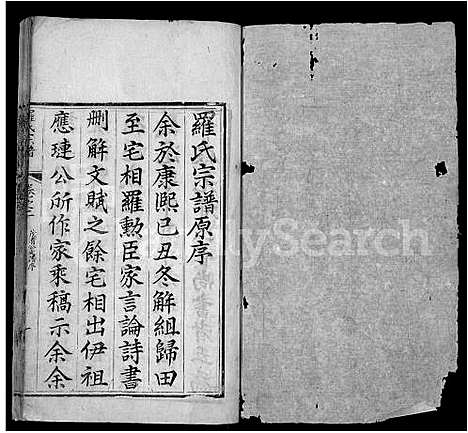 羅氏宗譜原序
余於康熙己丑冬解組歸田
至宅相羅勳臣家言論詩書
刪解文賦之餘宅相出伊祖
應璉公所作家乘稿示余余
羅氏宗譜
FamilySearch